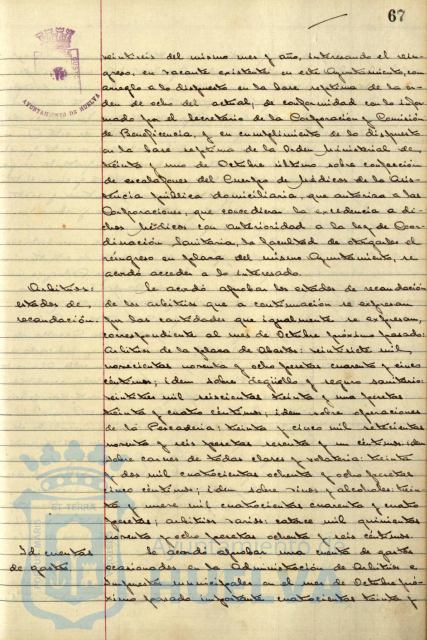 67
AYUNTAMIENTO DE HUELVA
veintiseis del mismo mes y año, interesando el rein-
greso, en vacante existente en este Ayuntamiento, con
arreglo a lo dispuesto en la base septima de la or-
den de ocho del actual; de conformidad con lo infor-
mado por el Secretario de la Corporacion y Comisión
de Beneficencia, y en cumplimiento de lo dispuesto
en la base septima de la Orden Ministerial de
treinta y uno de Octubre último sobre confección
de escalafones del Cuerpo de Médicos de la Asis-
tencia pública domiciliaria, que autoriza a las
Corporaciones, que concedieran la excedencia a di-
chos Médicos con anterioridad a la ley de Coor-
dinación Sanitaria, la facultad de otorgarles el
reingreso en plaza del mismo Ayuntamiento, se
acordó acceder a lo interesado.
Arbitrios:
estados de
recaudación.
Se acordó aprobar los estados de recaudación
de los arbitrios que a continuación se expresan
por las cantidades que igualmente se expresan,
correspondiente al mes de Octubre próximo pasado:
Arbitrios de la plaza de Abastos: veintisiete mil
novecientas noventa y ocho pesetas cuarenta y cinco
céntimos; idem sobre degüello y seguro sanitario:
veintitres mil seiscientas treinta y una pesetas
treinta y cuatro céntimos; idem sobre operaciones
de la Pescadería: treinta y cinco mil setecientas
noventa y seis pesetas sesenta y un céntimos; idem
sobre carnes de todas clases y volatería: treinta
y dos mil cuatrocientas ochenta y ocho pesetas
cinco céntimos; idem sobre vinos y alcoholes: trein-
ta y nueve mil cuatrocientas cuarenta y cuatro
pesetas; arbitrios varios: catorce mil quinientas
noventa y ocho pesetas ochenta y seis céntimos.
Id cuentas
de gastos
Se acordó aprobar una cuenta de gastos
ocasionados en la Administración de Arbitrios e
impuestos municipales en el mes de Octubre pró-
ximo pasado importante cuatrocientas treinta y